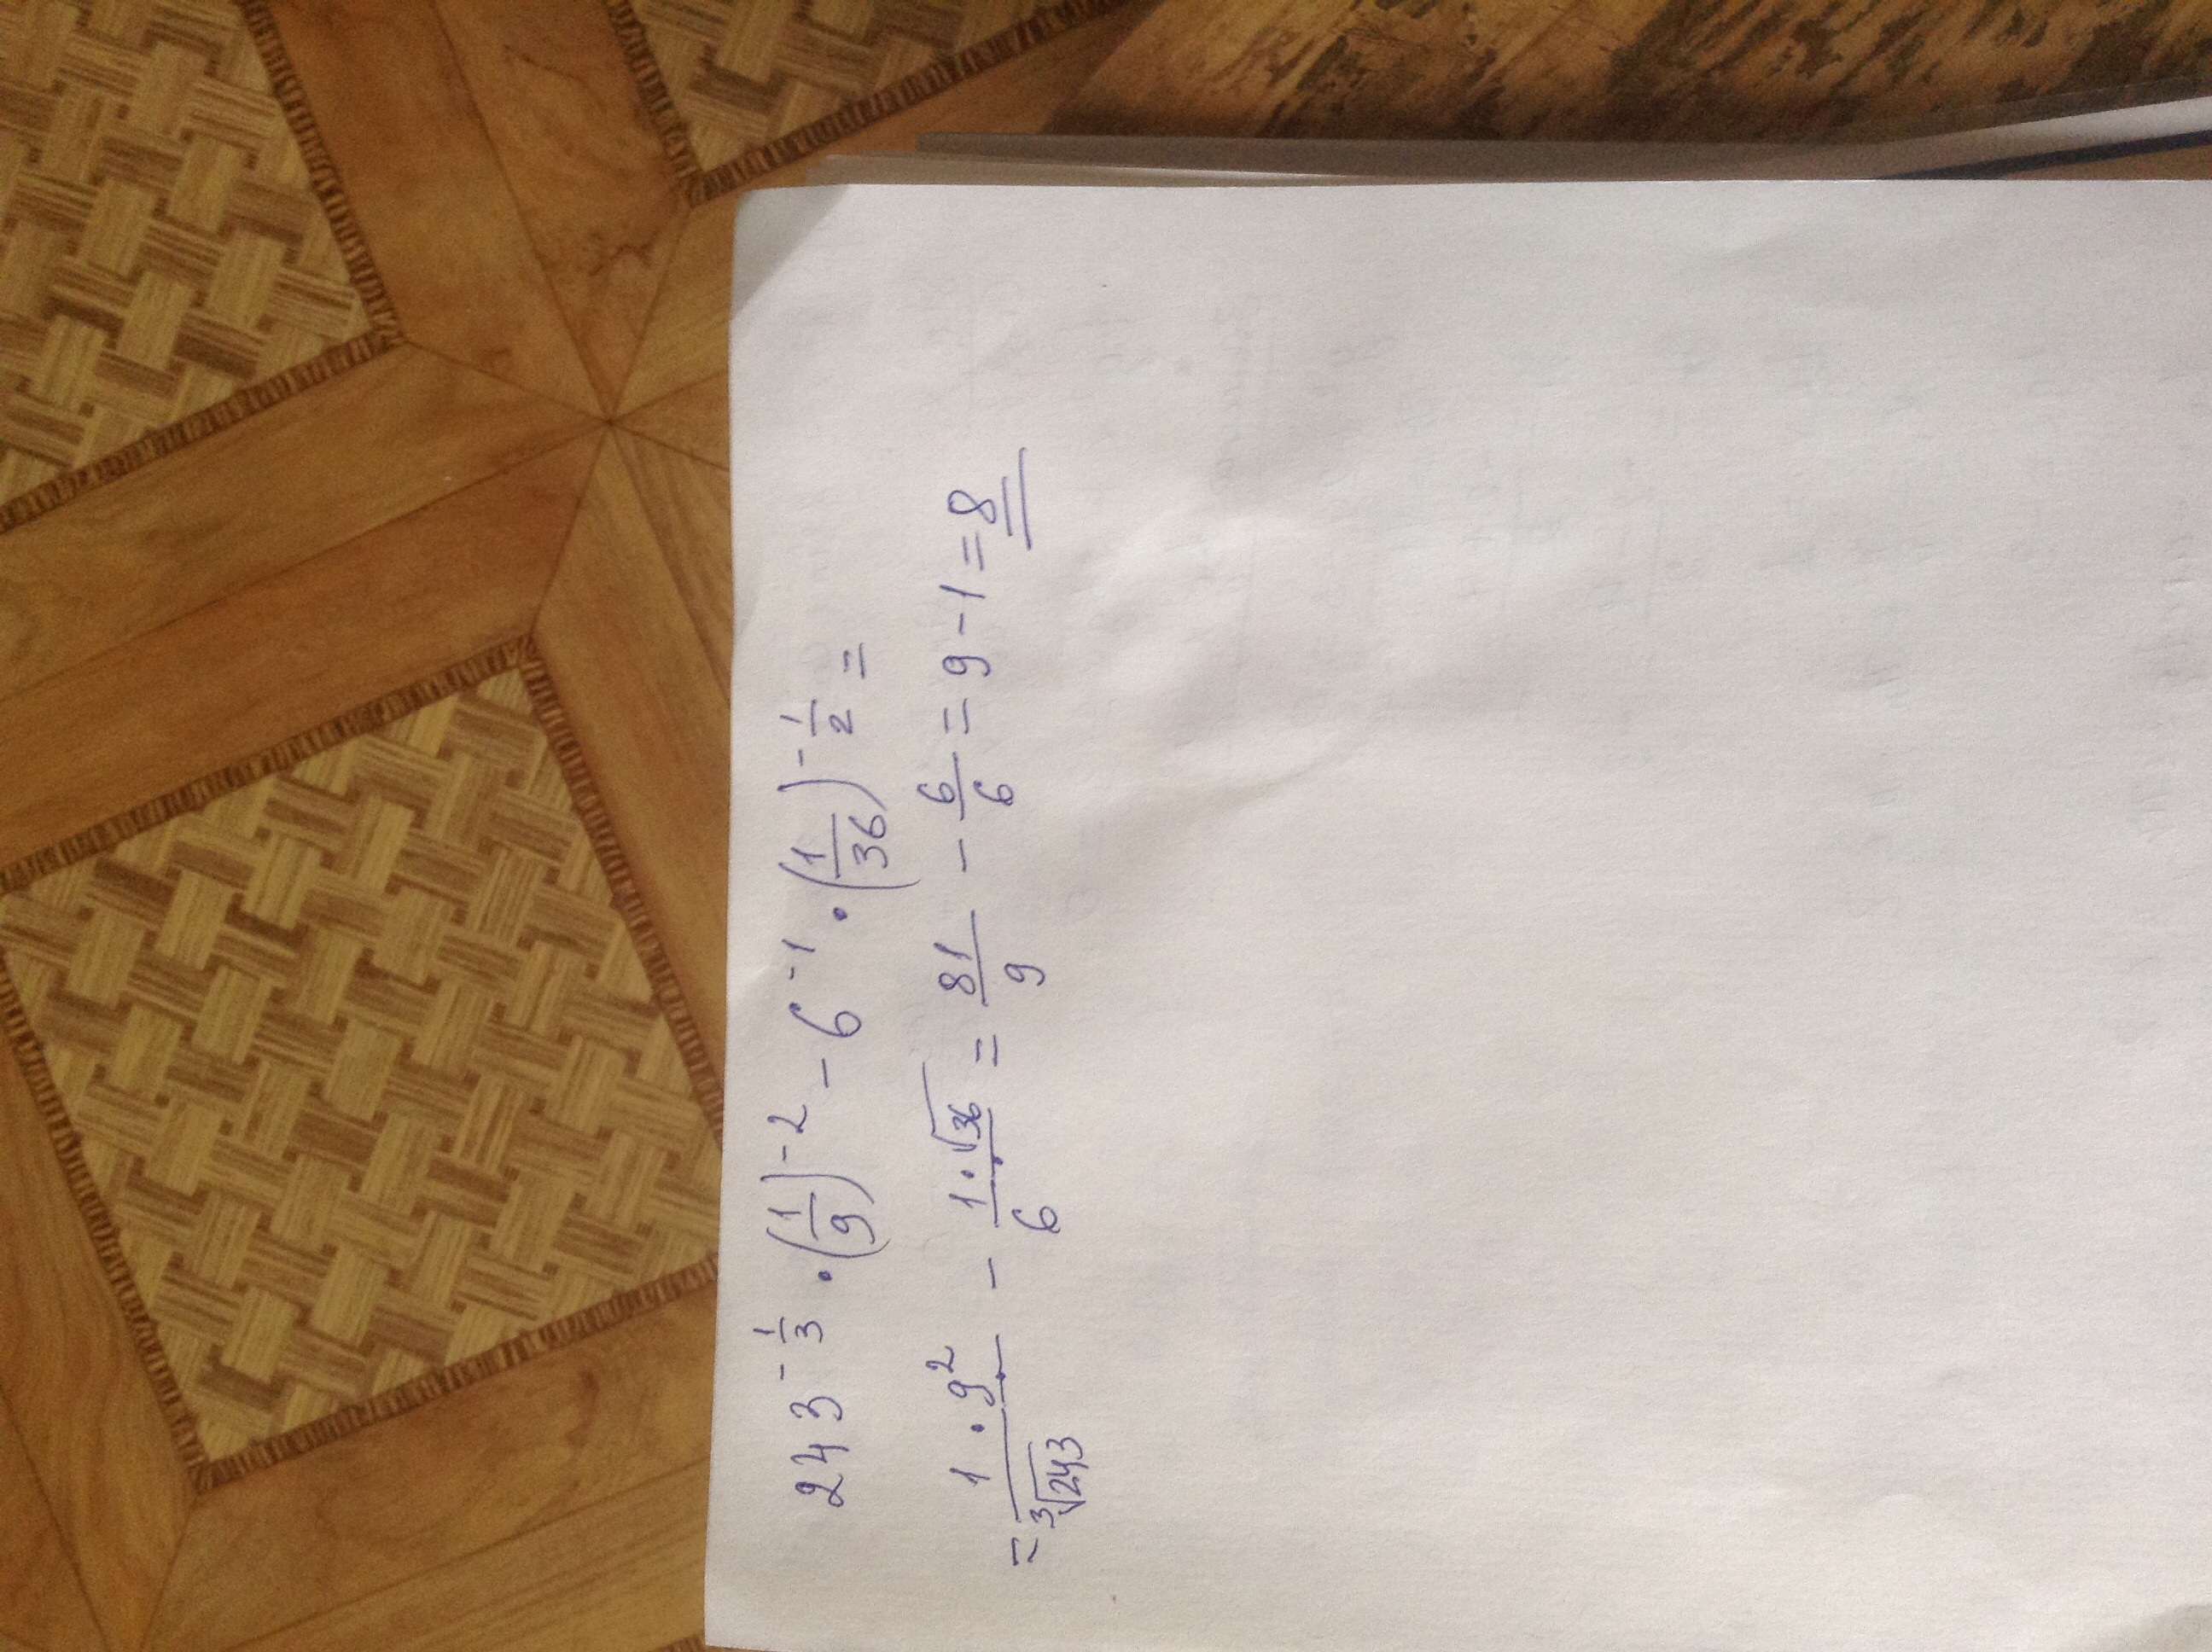 243^{-\frac{1}{3}} \cdot \left(\frac{1}{9}\right)^{-2} - 6^{-1} \cdot \left(\frac{1}{36}\right)^{-\frac{1}{2}} =
= \frac{1 \cdot 9^2}{\sqrt[3]{243}} - \frac{1 \cdot \sqrt{36}}{6} = \frac{81}{9} - \frac{6}{6} = 9 - 1 = 8